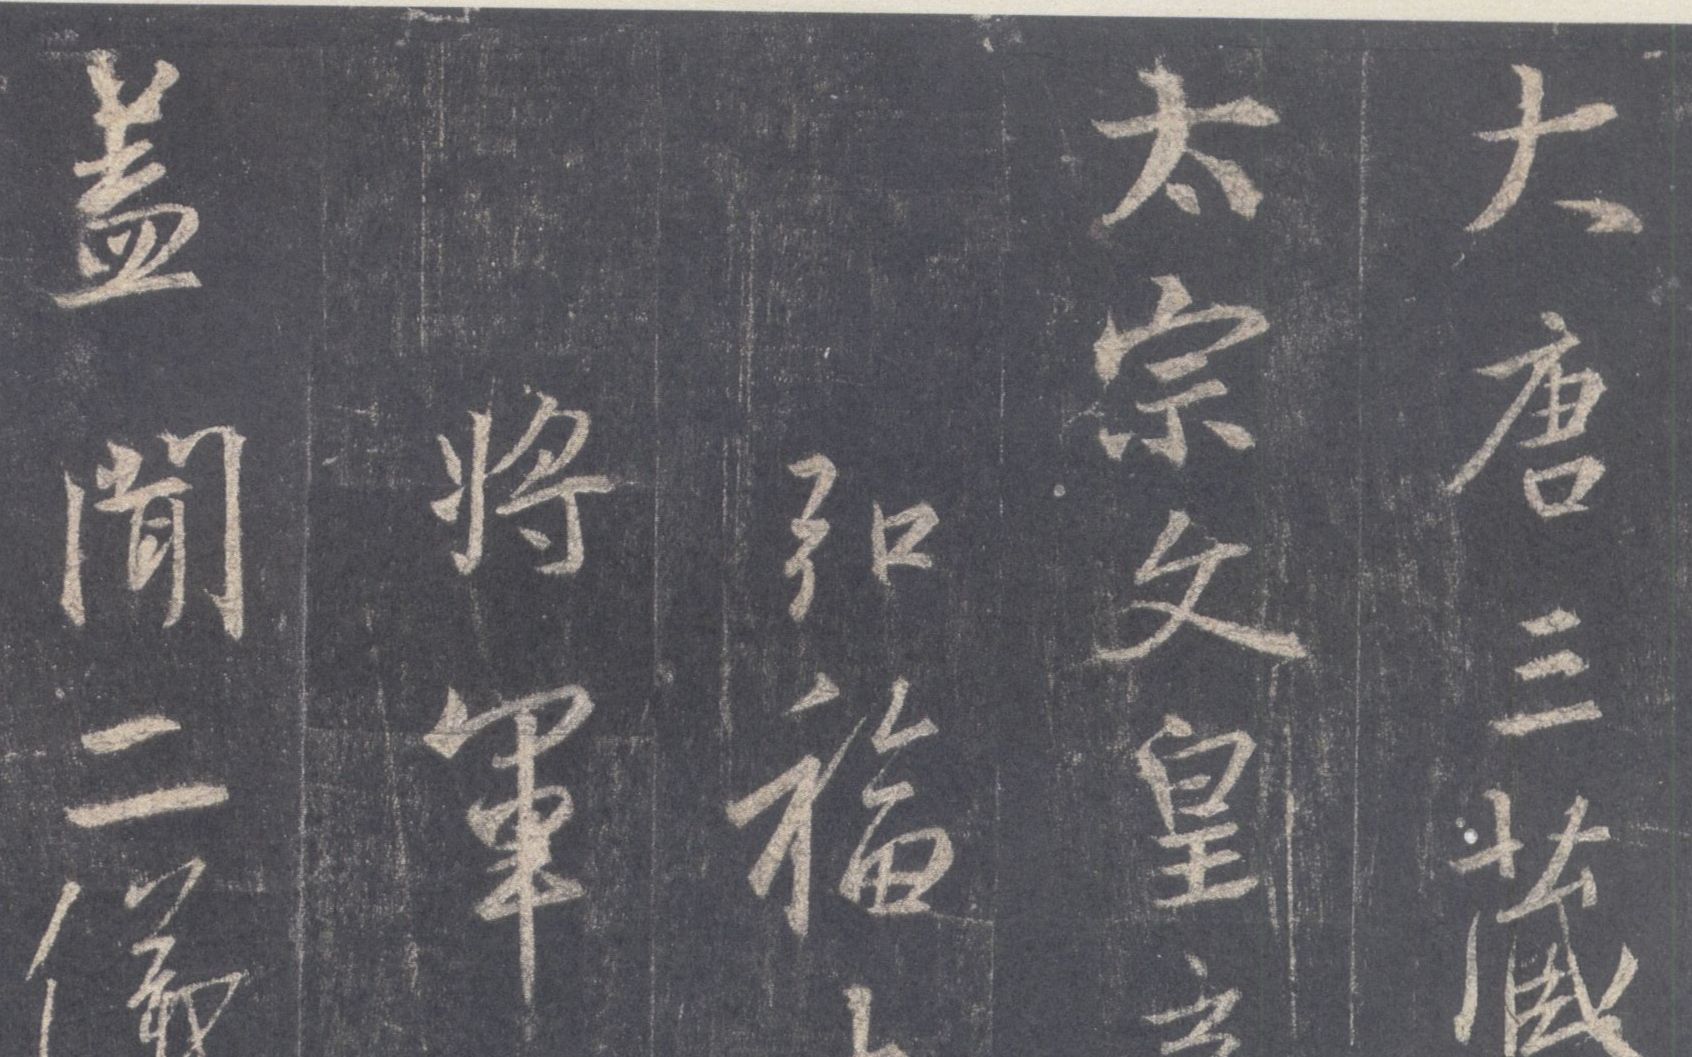 大唐三藏
太宗文皇
弘福
將軍
蓋聞二儀